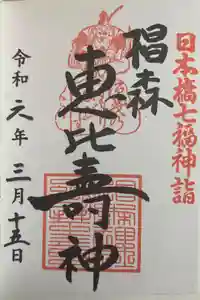 日本橋七福神詣
椙森
恵比壽神
令和元年三月十五日